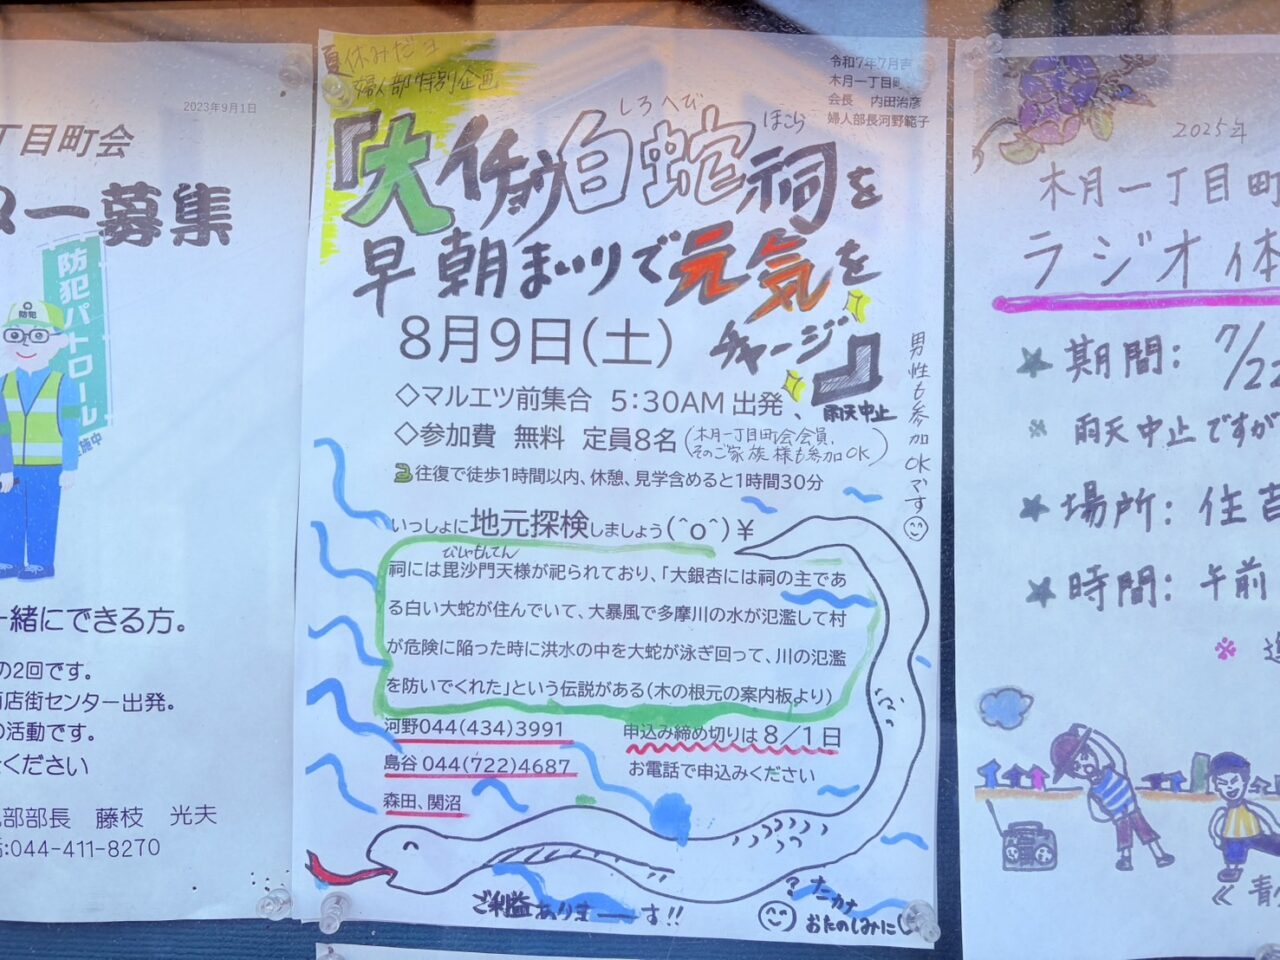 2023年9月1日
丁目町会
ー募集
防犯パトロール
実施中
防犯
一緒にできる方。
の2回です。
商店街センター出発。
の活動です。
ください
部部長 藤枝 光夫
044-411-8270
夏休みだヨ
婦人部特別企画
令和7年7月吉
木月一丁目町
会長 内田治彦
婦人部長河野範子
しろへび
ほこら
「大イチョウ白蛇祠を
早朝まいりで元気を
チャージ」
8月9日(土)
◇マルエツ前集合 5:30AM 出発、雨天中止
◇参加費 無料 定員8名(木月一丁目町会会員、
そのご家族様も参加OK)
往復で徒歩1時間以内、休憩、見学含めると1時間30分
男性も参加OKです
いっしょに地元探検しましょう(^o^)￥
びしゃもんてん
祠には毘沙門天様が祀られており、「大銀杏には祠の主であ
る白い大蛇が住んでいて、大暴風で多摩川の水が氾濫して村
が危険に陥った時に洪水の中を大蛇が泳ぎ回って、川の氾濫
を防いでくれた」という伝説がある(木の根元の案内板より)
河野044(434)3991
申込み締め切りは8/1日
島谷 044(722)4687
お電話で申込みください
森田、関沼
ご利益ありまーーす!!
おたのしみに
2025年
木月一丁目町
ラジオ体
★期間: 7/22
※ 雨天中止ですが
★場所: 住吉
★時間: 午前
※